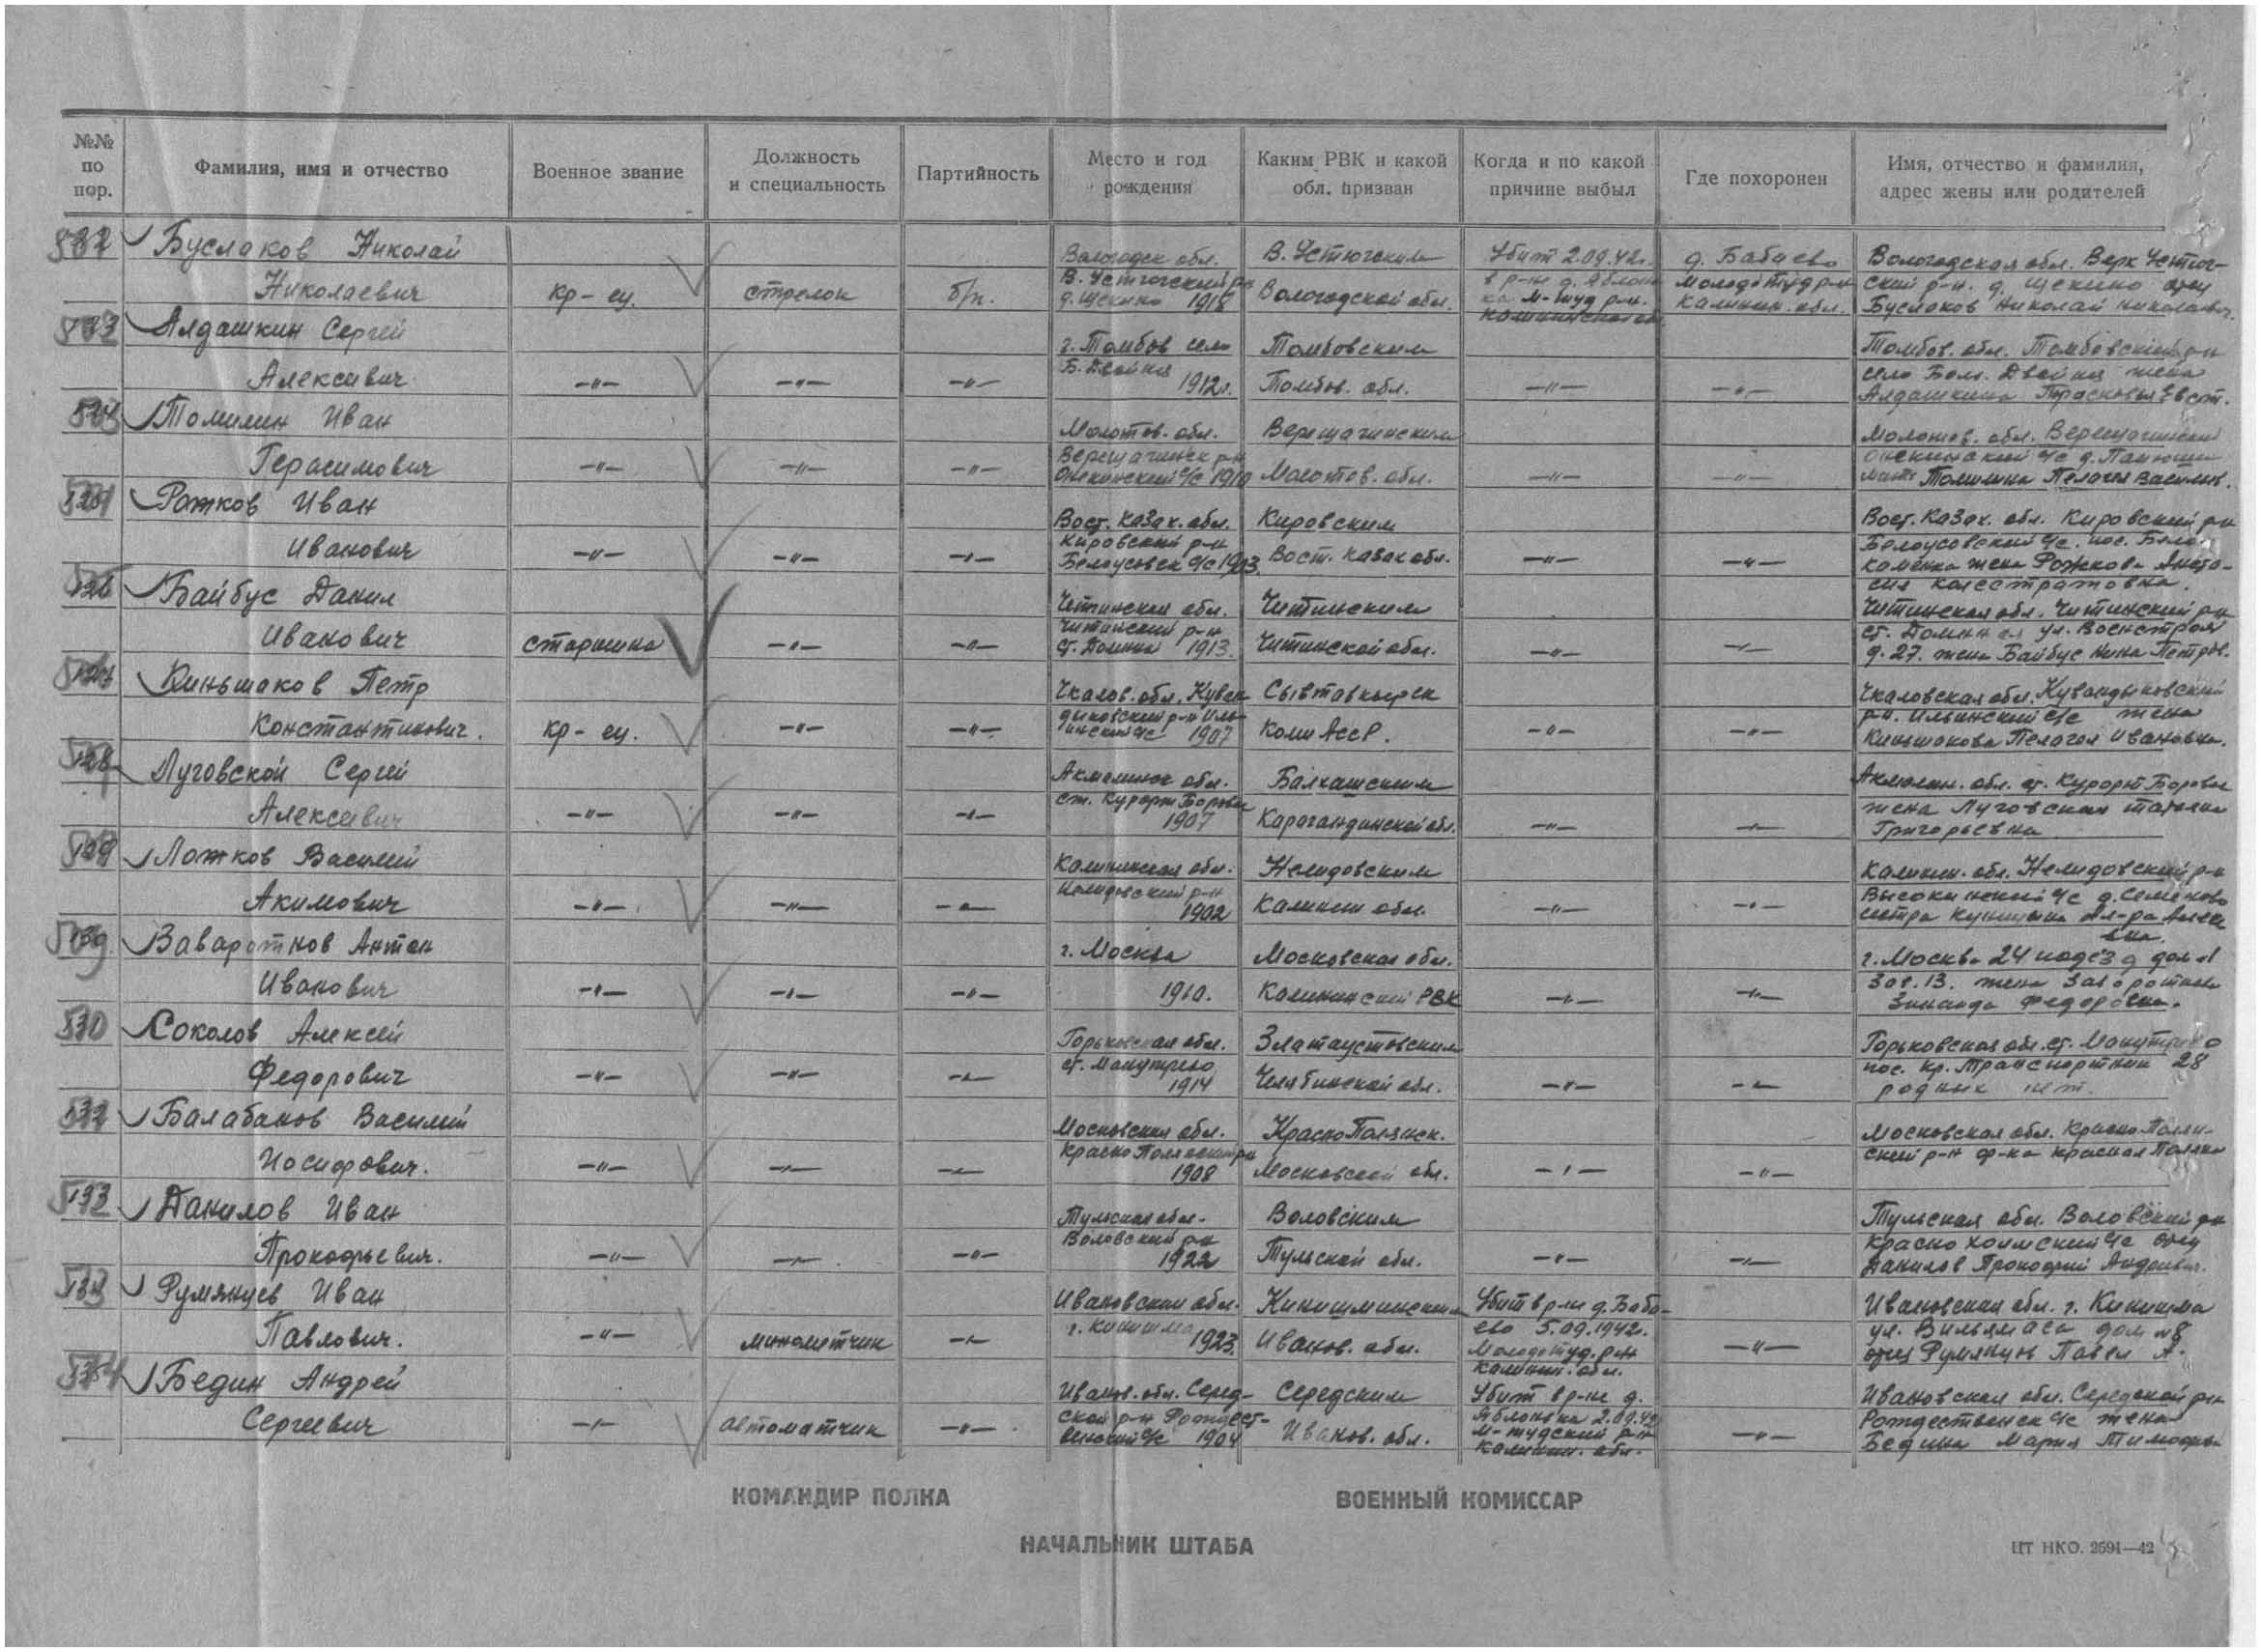 №№ по пор.
Фамилия, имя и отчество
Военное звание
Должность и специальность
Партийность
Место и год рождения
Каким РВК и какой обл. призван
Когда и по какой причине выбыл
Где похоронен
Имя, отчество и фамилия, адрес жены или родителей
Буслаков Николай
Николаевич
кр-ец.
стрелок
б/п.
Вологодск обл.
В. Устюгский р-н
д. Щекино 1918
В. Устюгским
Вологодской обл.
Убит 2.09.42г.
в р-не д. Яблонь
ка М-туд р-н.
д. Бабаево
Молодо Туд р-н
Калинин. обл.
Вологодская обл. Верх Устюг-
ский р-н. д. Щекино отец
Буслаков Николай Николаевич.
Алдашкин Сергей
Алексеевич
—"— —"— —"—
г. Тамбов село
Б. Двойня
1912г.
Тамбовским
Тамбов. обл.
—"— —"—
Тамбов. обл. Тамбовский р-н
село Бол. Двойня жена
Алдашкина Прасковья Евст.
Томилин Иван
Герасимович
—"— —"— —"—
Молотов. обл.
Верещагинск р-н
с/с 1910
Верещагинским
Молотов. обл.
—"— —"—
Молотов. обл. Верещагинский
с/с д.
мать Томилина Пелагея Васильев.
Рожков Иван
Иванович
—"— —"— —"—
Вост. Казах. обл.
Кировский р-н
Белоусовск с/с 1903.
Кировским
Вост. Казах обл.
—"— —"—
Вост. Казах. обл. Кировский р-н
Белоусовский с/с. пос. Бело-
каменка жена Рожкова Анста-
сия Калестратовна.
Байбус Данил
Иванович
старшина
—"— —"—
Читинская обл.
Читинский р-н
ст. Домна 1913.
Читинским
Читинской обл.
—"— —"—
Читинская обл. Читинский р-н
ст. Домна ул. Воснстроя
д. 27. жена Байбус Нина Петров.
Киньшаков Петр
Константинович.
кр-ец.
—"— —"—
Чкалов. обл. Куван
дыковский р-н Иль-
инский с/с 1907
Сывтавкырск
Коми АССР.
—"— —"—
Чкаловская обл. Кувандыковский
р-н. Ильинский с/с жена
Киньшакова Пелагея Ивановна.
Луговской Сергей
Алексеевич
—"— —"— —"—
Акмолинск обл.
ст. Курорт Боровое
1907
Балхашским
Карагандинской обл.
—"— —"—
Акмолин. обл. ст. Курорт Боровое
жена Луговская Татьяна
Григорьевна
Ложков Василий
Акимович
—"— —"— —"—
Калининская обл.
Нелидовский р-н
1902
Нелидовским
Калинин обл.
—"— —"—
Калинин. обл. Нелидовский р-н
Высокинский с/с д. Семеново
сестра Куницына Ал-ра Акимо
вна.
Заваротнов Антон
Иванович
—"— —"— —"—
г. Москва
1910.
Московская обл.
Калининский РВК
—"— —"—
г. Москва
жена Заворотнова
Зинаида Федоровна.
530
Соколов Алексей
Федорович
—"— —"— —"—
Горьковская обл.
ст.
1914
Златоустовским
Челябинской обл.
—"— —"—
Горьковская обл. ст.
пос. Кр. Транспортник 28
родных нет.
Балабанов Василий
Иосифович.
—"— —"— —"—
Московская обл.
Красно Полянский р-н
1908
Красно Полянск.
Московской обл.
—"— —"—
Московская обл. Красно Полян-
ский р-н ф-ка Красная Поляна
Данилов Иван
Прокофьевич.
—"— —"— —"—
Тульская обл.
Воловский р-н
1922
Воловским
Тульской обл.
—"— —"—
Тульская обл. Воловский р-н
Краснохолмский с/с отец
Данилов Прокофий Андреевич.
Румянцев Иван
Павлович.
—"—
минометчик
—"—
Ивановская обл.
г. Кинишма
1923.
Кинишминским
Иванов. обл.
Убит в р-не д. Баба-
ево 5.09.1942г.
Молодотуд. р-н
Калинин. обл.
—"—
Ивановская обл. г. Кинишма
ул. Вильямса дом №8
отец Румянцев Павел А.
Бедин Андрей
Сергеевич
—"—
автоматчик
—"—
Иванов. обл. Серед-
ской р-н Рождест-
венский с/с 1904
Середским
Иванов. обл.
Убит в р-не д.
Яблонька 2.09.42
М-тудский р-н
Калинин. обл.
—"—
Ивановская обл. Середской р-н
Рождественск с/с жена
Бедина Мария Тимофеев
КОМАНДИР ПОЛКА
ВОЕННЫЙ КОМИССАР
НАЧАЛЬНИК ШТАБА
ЦТ НКО. 2591—42